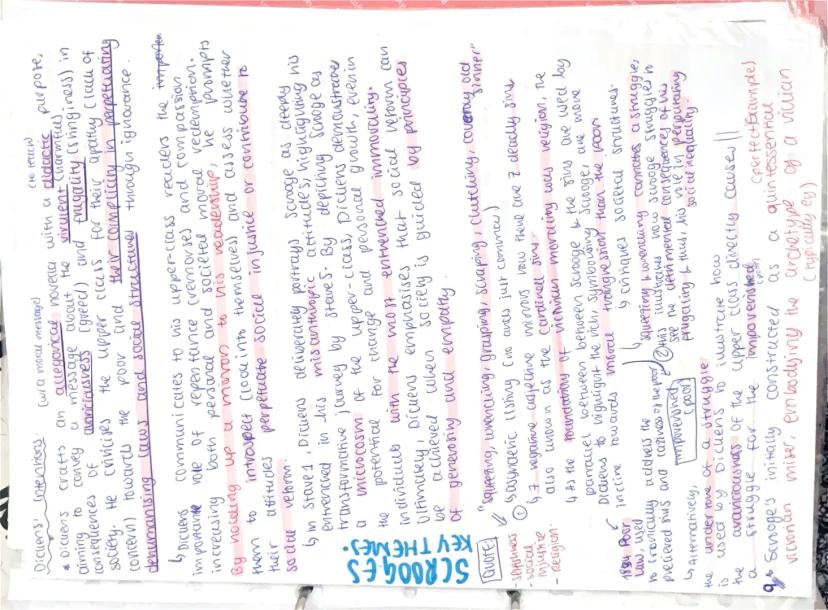 Dickens' Intentions (w/ a moral message) (to teach)
• Dickens crafts an allegorical novella with a didactic purpose,
aiming to convey a message about the virulent (harmful)
consequences of avariciousness (greed) and frugality (stinginess) in
society. He criticises the upper class for their apathy (lack of
concern) towards the poor and their complicity in perpetuating
dehumanising laws and social structures through ignorance.
↳ Dickens communicates to his upper-class readers the
important role of repentance (remorse) and compassion
increasing both personal and societal moral redemption.
By holding up a mirror to his readership, he prompts
them to introspect (look into themselves) and assess whether
their attitudes perpetuate social injustice or contribute to
social reform.
↳ In Stave 1, Dickens deliberately portrays Scrooge as deeply
entrenched in his misanthropic attitudes, highlighting his
transformative journey by Stave 5. By depicting Scrooge as
a microcosm of the upper-class, Dickens demonstrates
the potential for change and personal growth, even in
individuals with the most entrenched immorality.
Ultimately, Dickens emphasises that social reform can
be achieved when society is guided by principles
of generosity and empathy.
SCROOGES
KEY THEMES.
QUOTE "squeezing, wrenching, grasping, scraping, clutching, covetous old
sinner"
- selfishness
- social
injustice
- religion.
① ↳ asyndetic listing (no ands just commas)
↳ 7 negative adjective mirrors how there are 7 deadly sins
also known as the cardinal sins.
↳ As the foundation of victorian morality was religion, the
parallel between Scrooge & the sins are used by
Dickens to highlight the rich, symbolising Scrooge, are more
incline towards moral transgression than the poor.
1834 Poor
Law, used
to ironically address the
precieved sins and laziness of the poor
↳ critiques societal structures.
squeezing & wrenching connotes a struggle,
② this illustrates how Scrooge struggles to
see the detrimental consequences of his
frugality & thus, his role in perpetuating
social inequality.
↳ Alternatively, impoverished (poor)
the undertone of a struggle
is used by Dickens to illustrate how
the avariciousness of the upper class directly causes
a struggle for the impoverished. (poor)
(perfect example)
Scrooge's initially constructed as a quintessential
victorian miser, embodying the archetype of a victian
(typically eg)